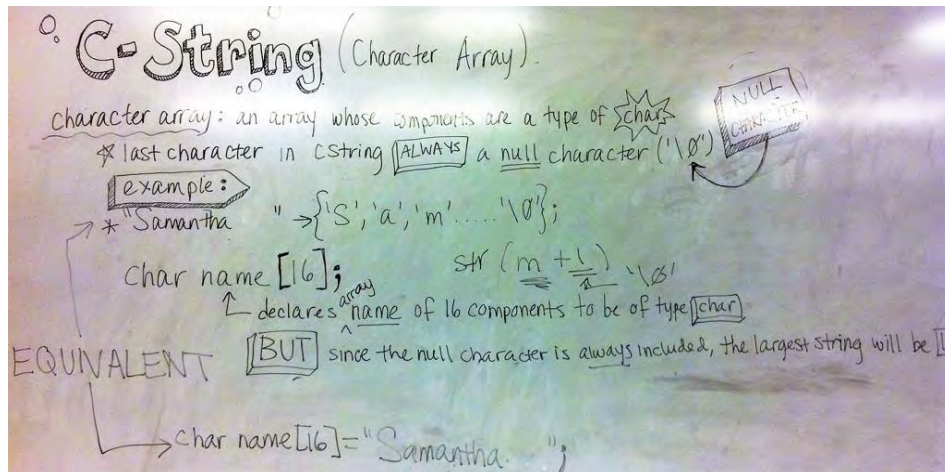 C-String (Character Array).
character array: an array whose components are a type of char
NULL CHARACTER
* last character in CString ALWAYS a null character ('\0')
example:
* "Samantha " → {'S', 'a', 'm' ..... '\0'};
char name [16];
str (m + 1) '\0'
declares array name of 16 components to be of type char
BUT since the null character is always included, the largest string will be
EQUIVALENT
char name[16] = "Samantha. ";